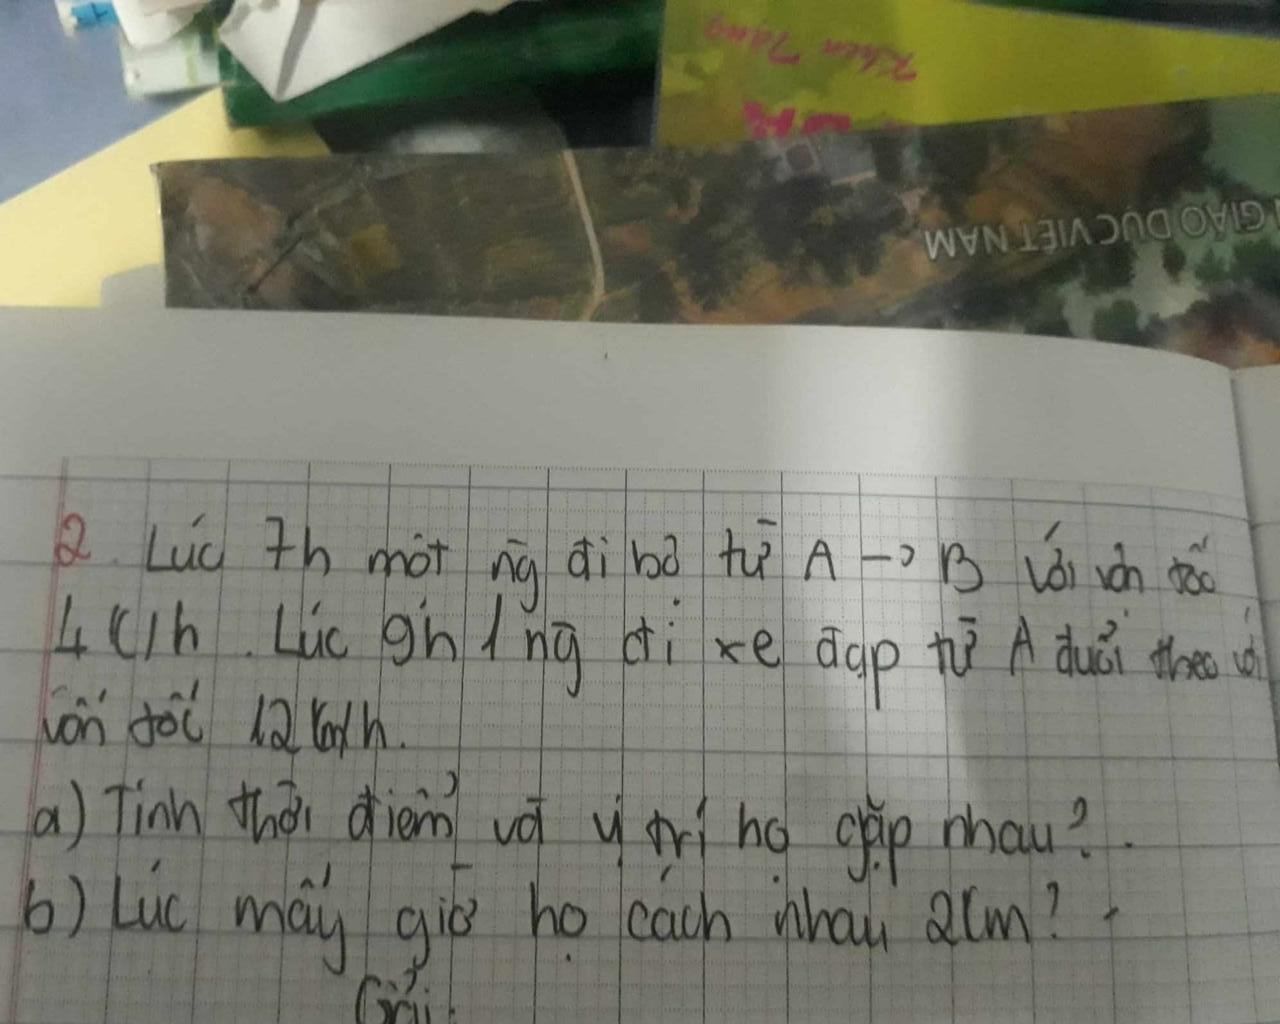 Khen Tặng
GIÁO DỤC VIỆT NAM
2. Lúc 7h một ng̃ đi bộ từ A → B với vận tốc
4 km/h. Lúc 9h 1 ng̃ đi xe đạp từ A đuổi theo với
vận tốc 12 km/h.
a) Tính thời điểm và vị trí họ gặp nhau?
b) Lúc mấy giờ họ cách nhau 2km?
Giải: